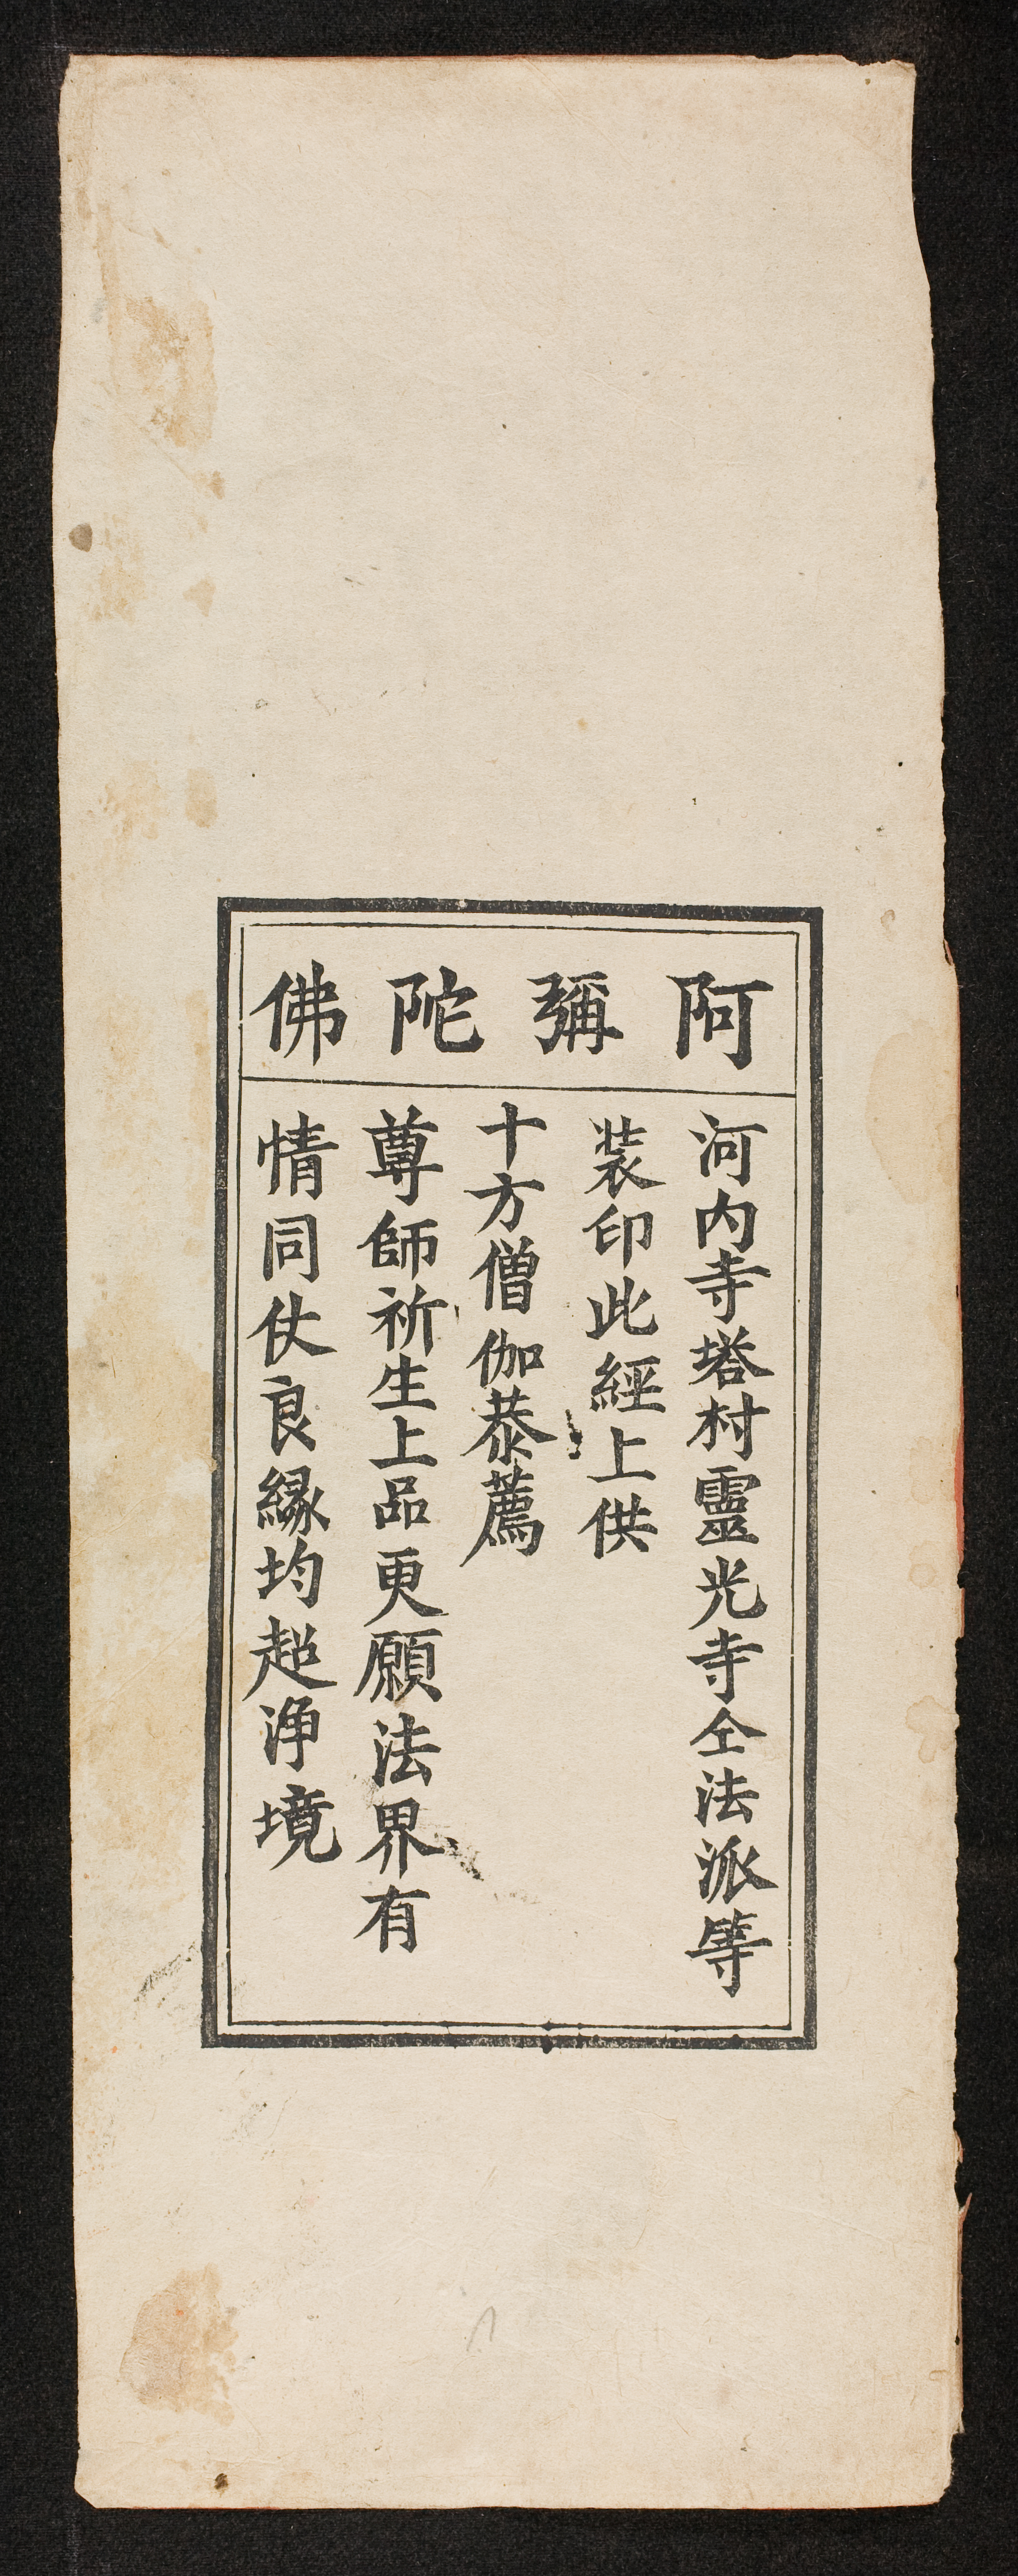 阿彌陀佛
河内寺塔村靈光寺仝法派等
装印此經上供
十方僧伽恭薦
尊師祈生上品更願法界有
情同仗良縁均超浄境